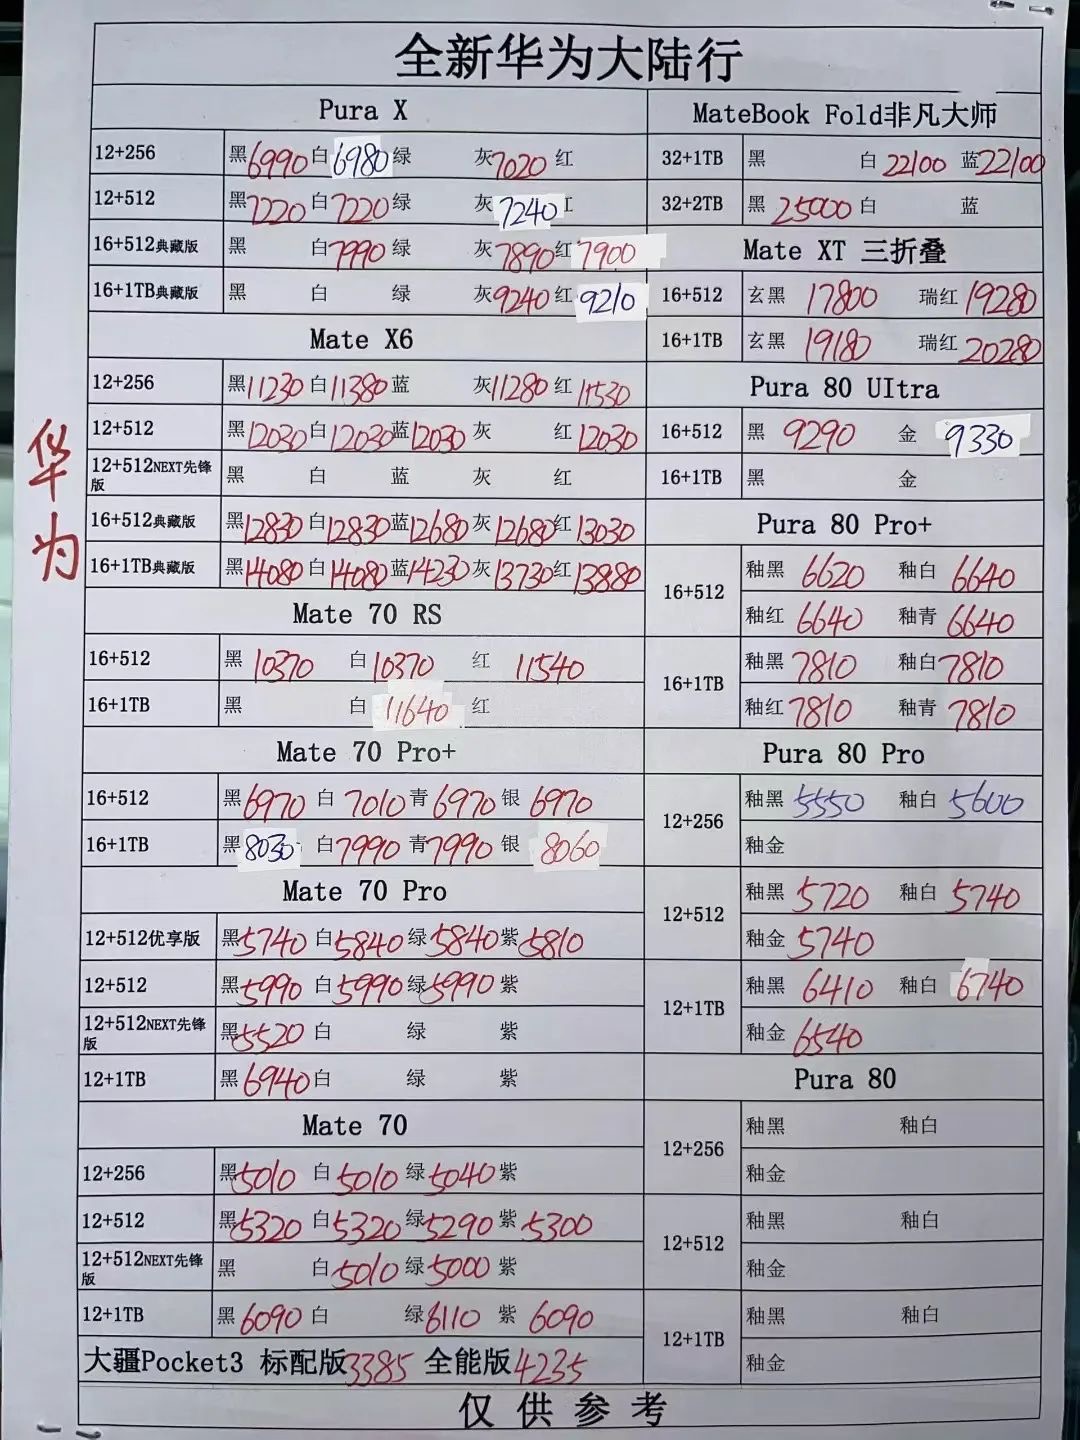 全新华为大陆行
华为
Pura X
12+256 黑6990 白6980 绿 灰7020 红
12+512 黑7220 白7220 绿 灰7240
16+512典藏版 黑 白7990 绿 灰7890 红7900
16+1TB典藏版 黑 白 绿 灰9240 红9210
Mate X6
12+256 黑11230 白11380 蓝 灰11280 红11530
12+512 黑12030 白12030 蓝12030 灰 红12030
12+512NEXT先锋版 黑 白 蓝 灰 红
16+512典藏版 黑12830 白12830 蓝12680 灰12680 红13030
16+1TB典藏版 黑14080 白14080 蓝14230 灰13730 红13880
Mate 70 RS
16+512 黑10370 白10370 红11540
16+1TB 黑 白11640 红
Mate 70 Pro+
16+512 黑6970 白7010 青6970 银6970
16+1TB 黑8030 白7990 青7990 银8060
Mate 70 Pro
12+512优享版 黑5740 白5840 绿5840 紫5810
12+512 黑5990 白5990 绿5990 紫
12+512NEXT先锋版 黑5520 白 绿 紫
12+1TB 黑6940 白 绿 紫
Mate 70
12+256 黑5010 白5010 绿5040 紫
12+512 黑5320 白5320 绿5290 紫5300
12+512NEXT先锋版 黑 白5010 绿5000 紫
12+1TB 黑6090 白 绿6110 紫6090
大疆Pocket3 标配版3385 全能版4235
MateBook Fold非凡大师
32+1TB 黑 白22100 蓝22100
32+2TB 黑25000 白 蓝
Mate XT 三折叠
16+512 玄黑17800 瑞红19280
16+1TB 玄黑19180 瑞红20280
Pura 80 UItra
16+512 黑9290 金9330
16+1TB 黑 金
Pura 80 Pro+
16+512 釉黑6620 釉白6640
釉红6640 釉青6640
16+1TB 釉黑7810 釉白7810
釉红7810 釉青7810
Pura 80 Pro
12+256 釉黑5550 釉白5600
釉金
12+512 釉黑5720 釉白5740
釉金5740
12+1TB 釉黑6410 釉白6740
釉金6540
Pura 80
12+256 釉黑 釉白
釉金
12+512 釉黑 釉白
釉金
12+1TB 釉黑 釉白
釉金
仅供参考